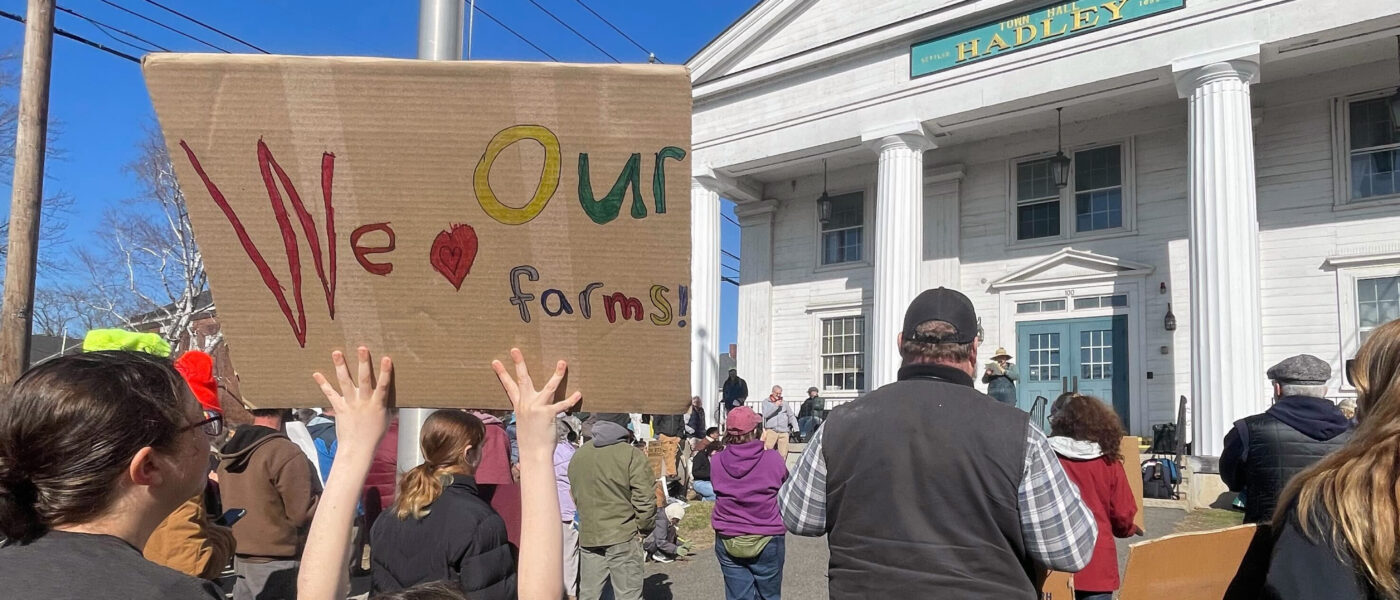 TOWN HALL
HADLEY
We ♥ Our
farms!
100